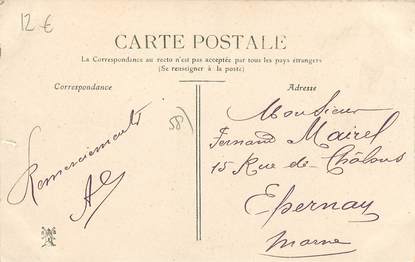 12 €
CARTE POSTALE
La Correspondance au recto n'est pas acceptée par tous les pays étrangers
(Se renseigner à la poste)
Correspondance
Adresse
58)
Remerciements
Monsieur
Fernand Mairel
15 Rue de Châlons
Epernay
Marne